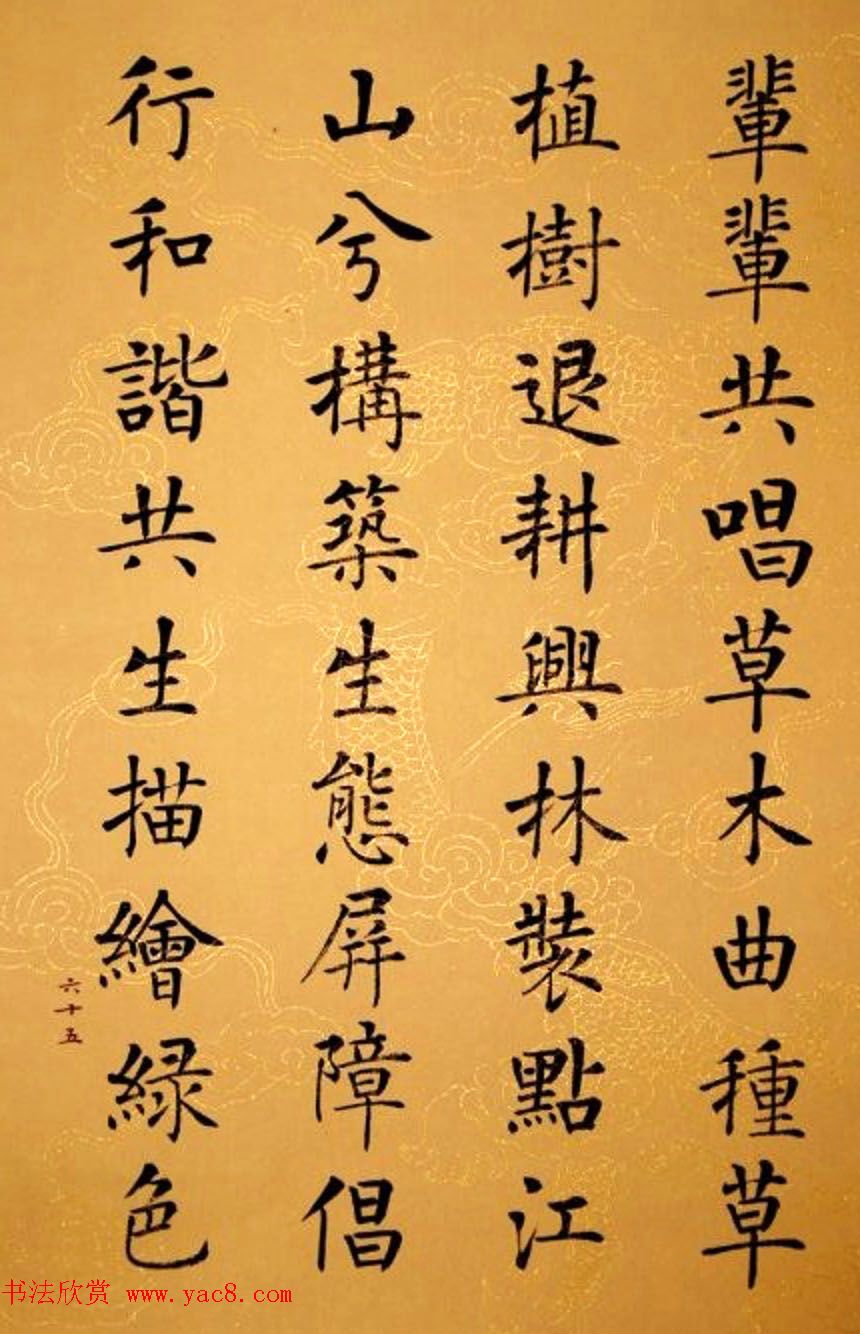 輩輩共唱草木曲種草
植樹退耕興林裝點江
山兮構築生態屏障倡
行和諧共生描繪緑色
六十五
书法欣赏 www.yac8.com